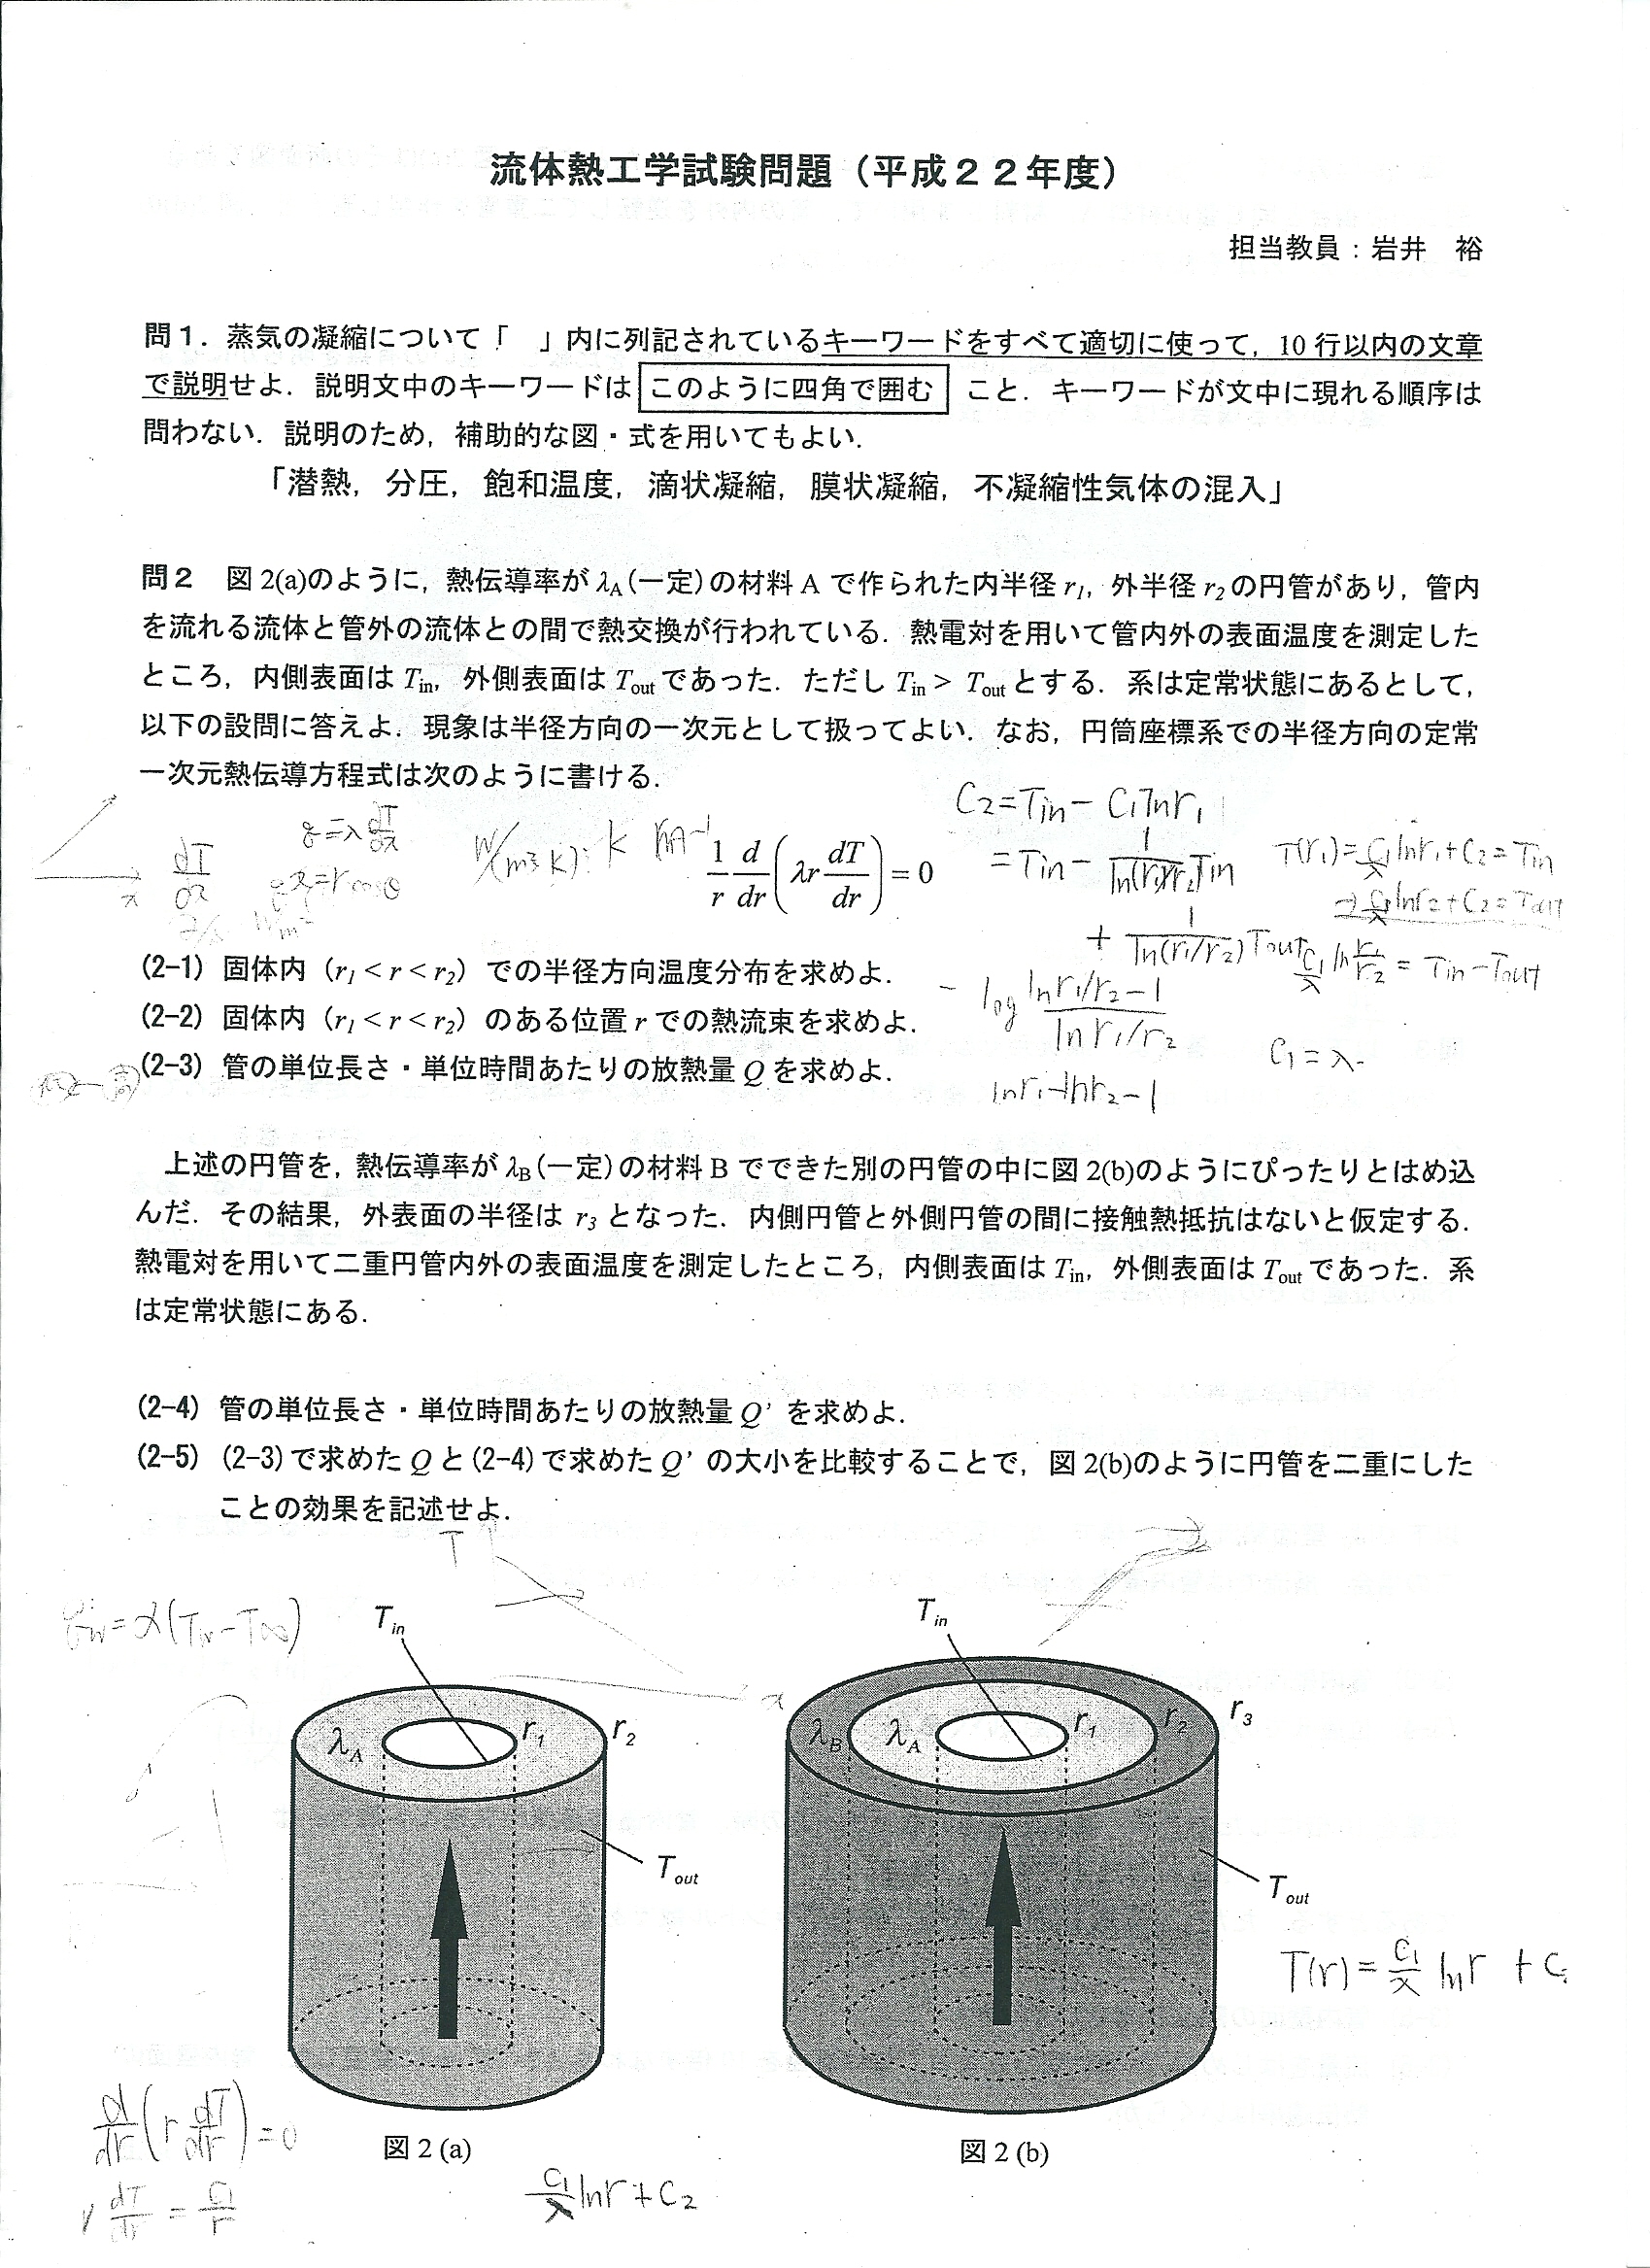 流体熱工学試験問題（平成２２年度）
担当教員：岩井　裕
問１．蒸気の凝縮について「　」内に列記されているキーワードをすべて適切に使って，10 行以内の文章
で説明せよ．説明文中のキーワードは このように四角で囲む こと．キーワードが文中に現れる順序は
問わない．説明のため，補助的な図・式を用いてもよい．
「潜熱，分圧，飽和温度，滴状凝縮，膜状凝縮，不凝縮性気体の混入」
問２　図 2(a)のように，熱伝導率が λA(一定)の材料 A で作られた内半径 r1，外半径 r2 の円管があり，管内
を流れる流体と管外の流体との間で熱交換が行われている．熱電対を用いて管内外の表面温度を測定した
ところ，内側表面は Tin，外側表面は Tout であった．ただし Tin > Tout とする．系は定常状態にあるとして，
以下の設問に答えよ．現象は半径方向の一次元として扱ってよい．なお，円筒座標系での半径方向の定常
一次元熱伝導方程式は次のように書ける．
C2=Tin− C1lnr1
=Tin− 1/ln(r1/r2) Tin
+ 1/ln(r1/r2) Tout
T(r1)= C1/λ lnr1+C2=Tin
→ C1/λ lnr2+C2=Tout
C1/λ ln r1/r2 = Tin−Tout
C1=λ-
dT/dx
q=λ dT/dx
x=rcosθ
W/(m3 K): K m-1
1/r d/dr (λr dT/dr) = 0
(2-1) 固体内（r1 < r < r2）での半径方向温度分布を求めよ．
(2-2) 固体内（r1 < r < r2）のある位置 r での熱流束を求めよ．
(2-3) 管の単位長さ・単位時間あたりの放熱量 Q を求めよ．
log lnr1/r2−1 / ln r1/r2
lnr1−lnr2−1
上述の円管を，熱伝導率が λB(一定)の材料 B でできた別の円管の中に図 2(b)のようにぴったりとはめ込
んだ．その結果，外表面の半径は r3 となった．内側円管と外側円管の間に接触熱抵抗はないと仮定する．
熱電対を用いて二重円管内外の表面温度を測定したところ，内側表面は Tin，外側表面は Tout であった．系
は定常状態にある．
(2-4) 管の単位長さ・単位時間あたりの放熱量 Q’ を求めよ．
(2-5) (2-3)で求めた Q と(2-4)で求めた Q’ の大小を比較することで，図 2(b)のように円管を二重にした
ことの効果を記述せよ．
T
x
Tin
λA
r1
r2
Tout
Tin
λB
λA
r1
r2
r3
Tout
T(r)= C1/λ lnr + C
d/dr (r dT/dr) =0
図 2 (a)
図 2 (b)
r dT/dr = C1/r
C1/λ lnr+C2